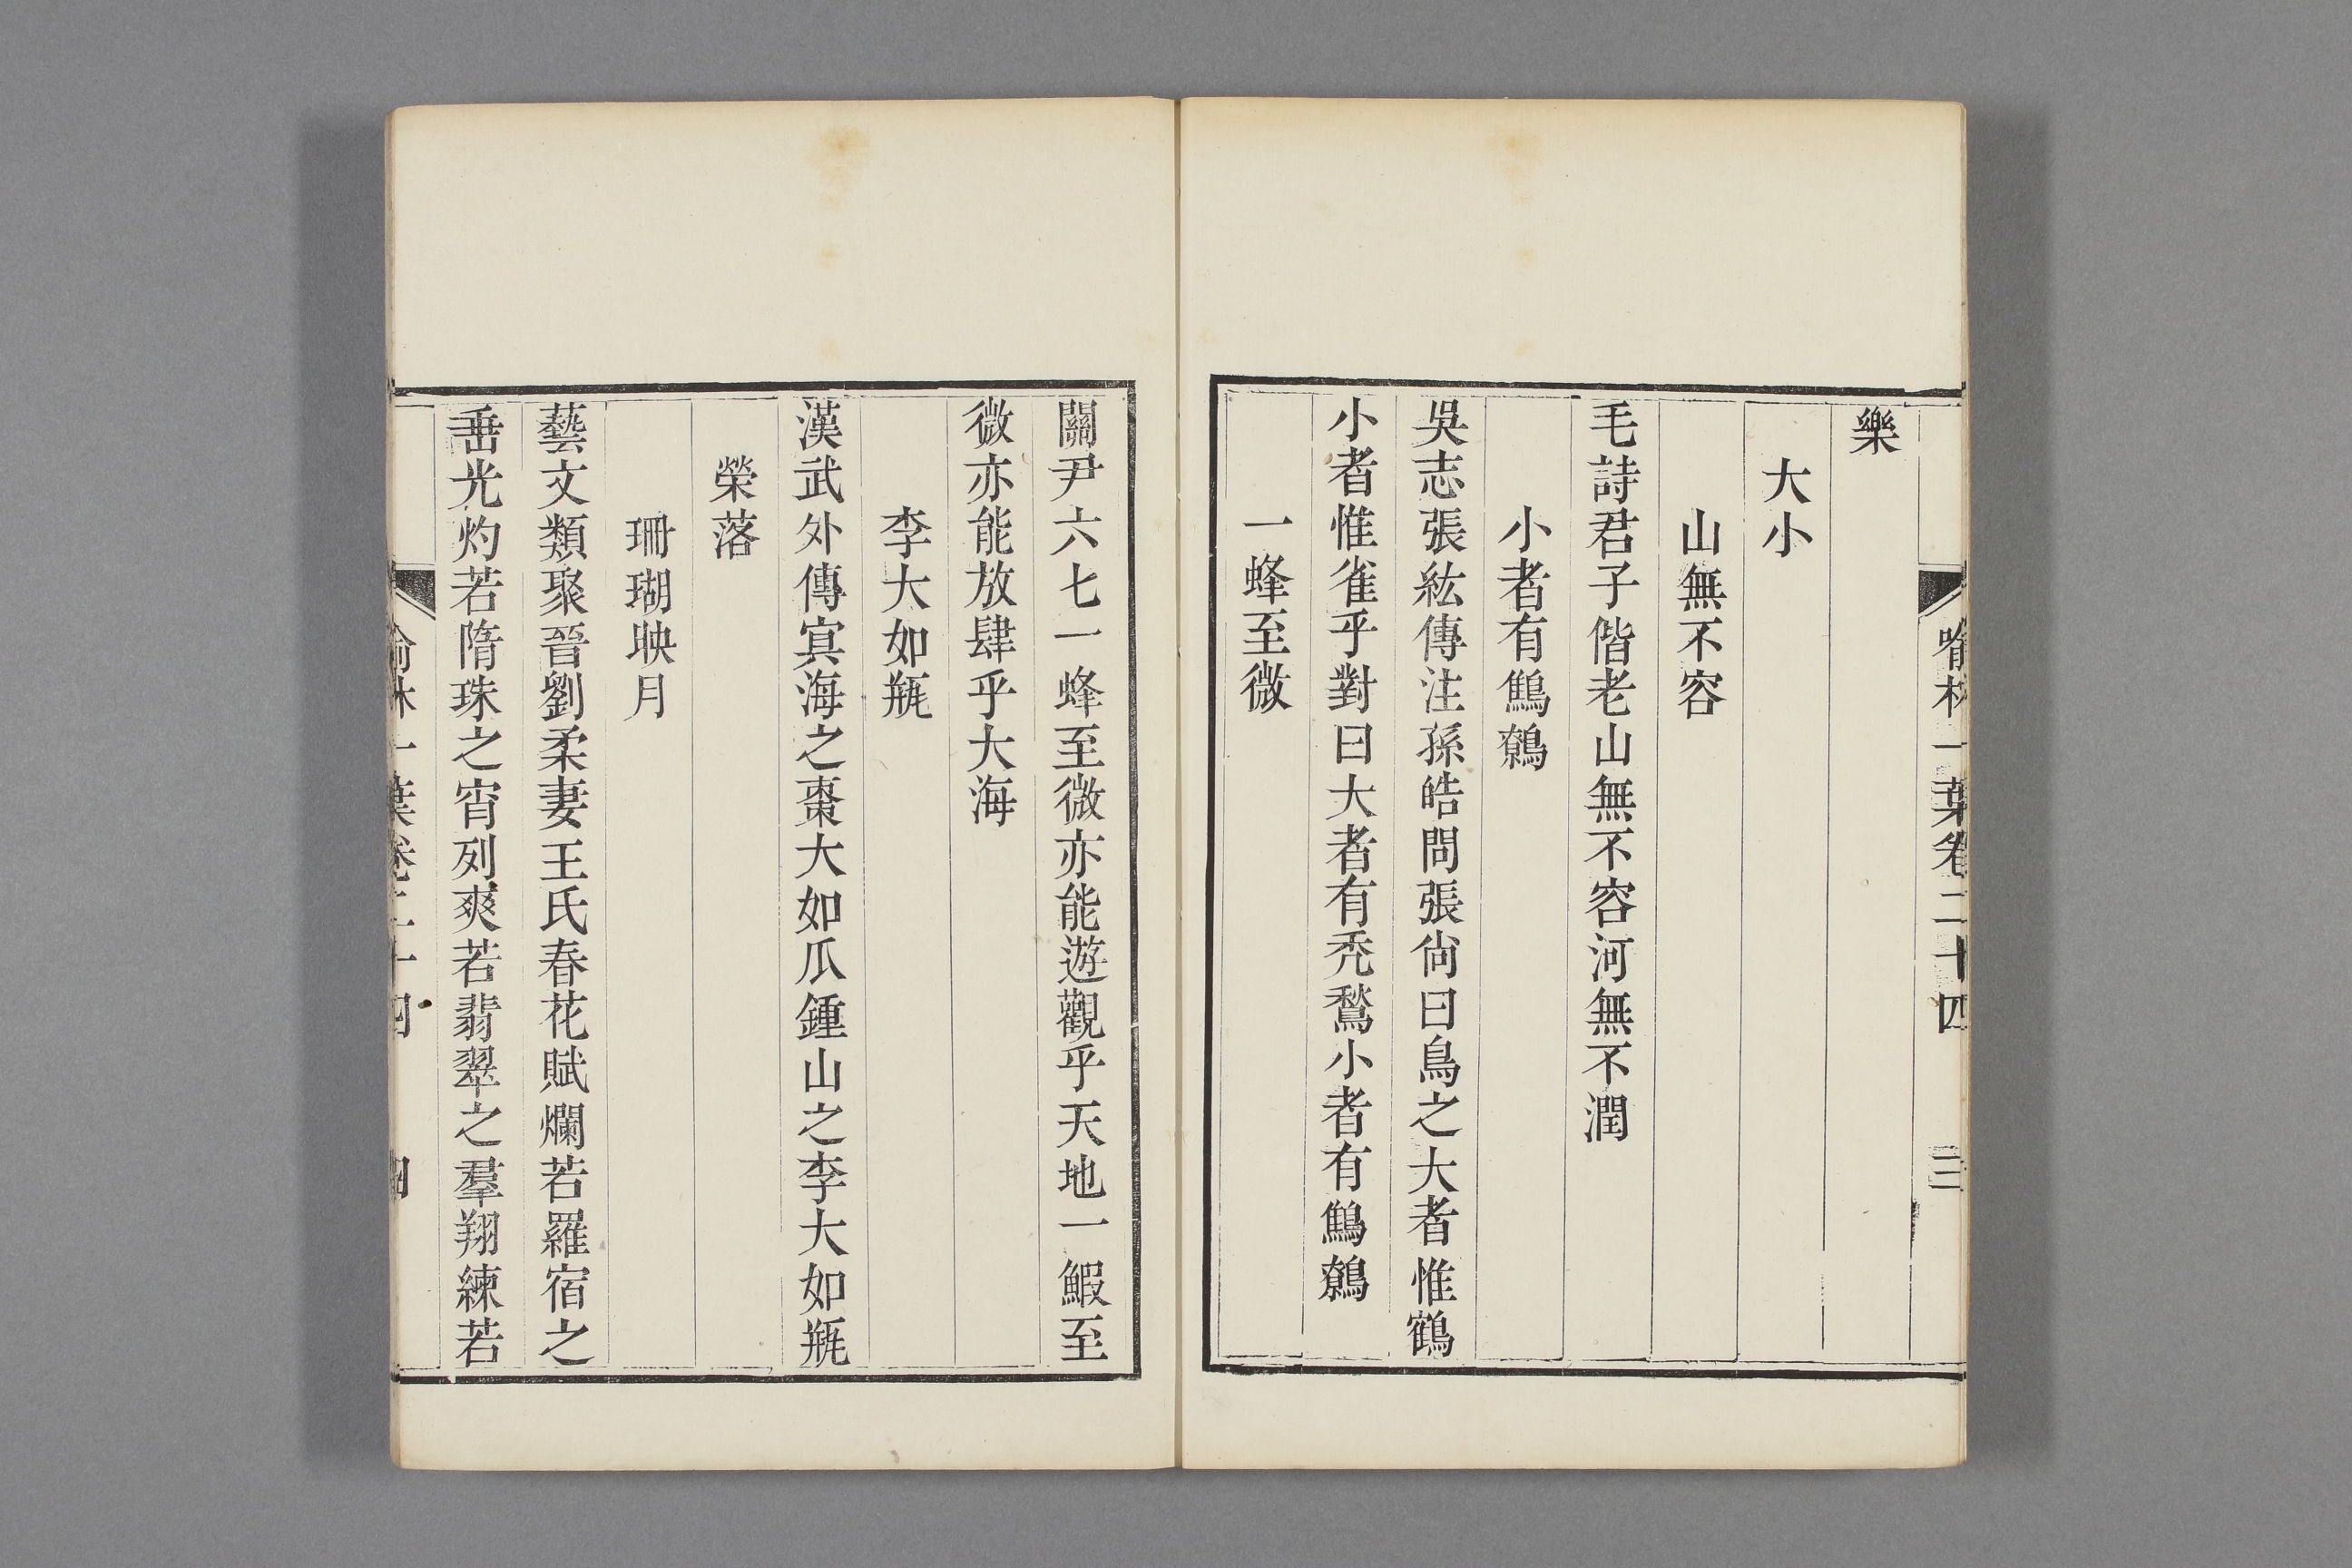 喻林一葉卷二十四 三
樂
大小
山無不容
毛詩君子偕老山無不容河無不潤
小者有鷦鷯
吳志張紘傳注孫皓問張尙曰鳥之大者惟鶴
小者惟雀乎對曰大者有禿鶖小者有鷦鷯
一蜂至微
關尹六七一蜂至微亦能遊觀乎天地一鰕至
微亦能放肆乎大海
李大如瓶
漢武外傳㝠海之棗大如瓜鍾山之李大如瓶
榮落
珊瑚映月
藝文類聚晉劉柔妻王氏春花賦爛若羅宿之
垂光灼若隋珠之宵列爽若翡翠之羣翔練若
喻林一葉卷二十四 四